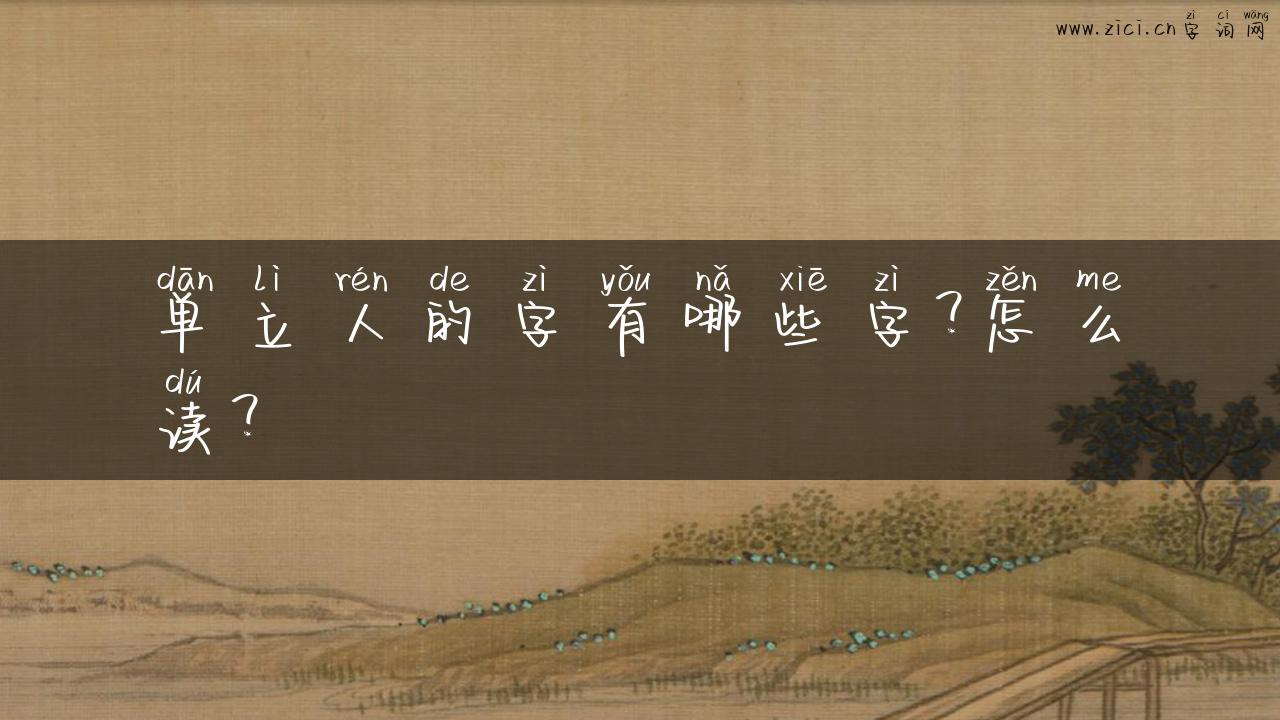 zì cí wǎng
www.zici.cn字词网
dān lì rén de zì yǒu nǎ xiē zì zěn me
单立人的字有哪些字？怎么
dú
读？